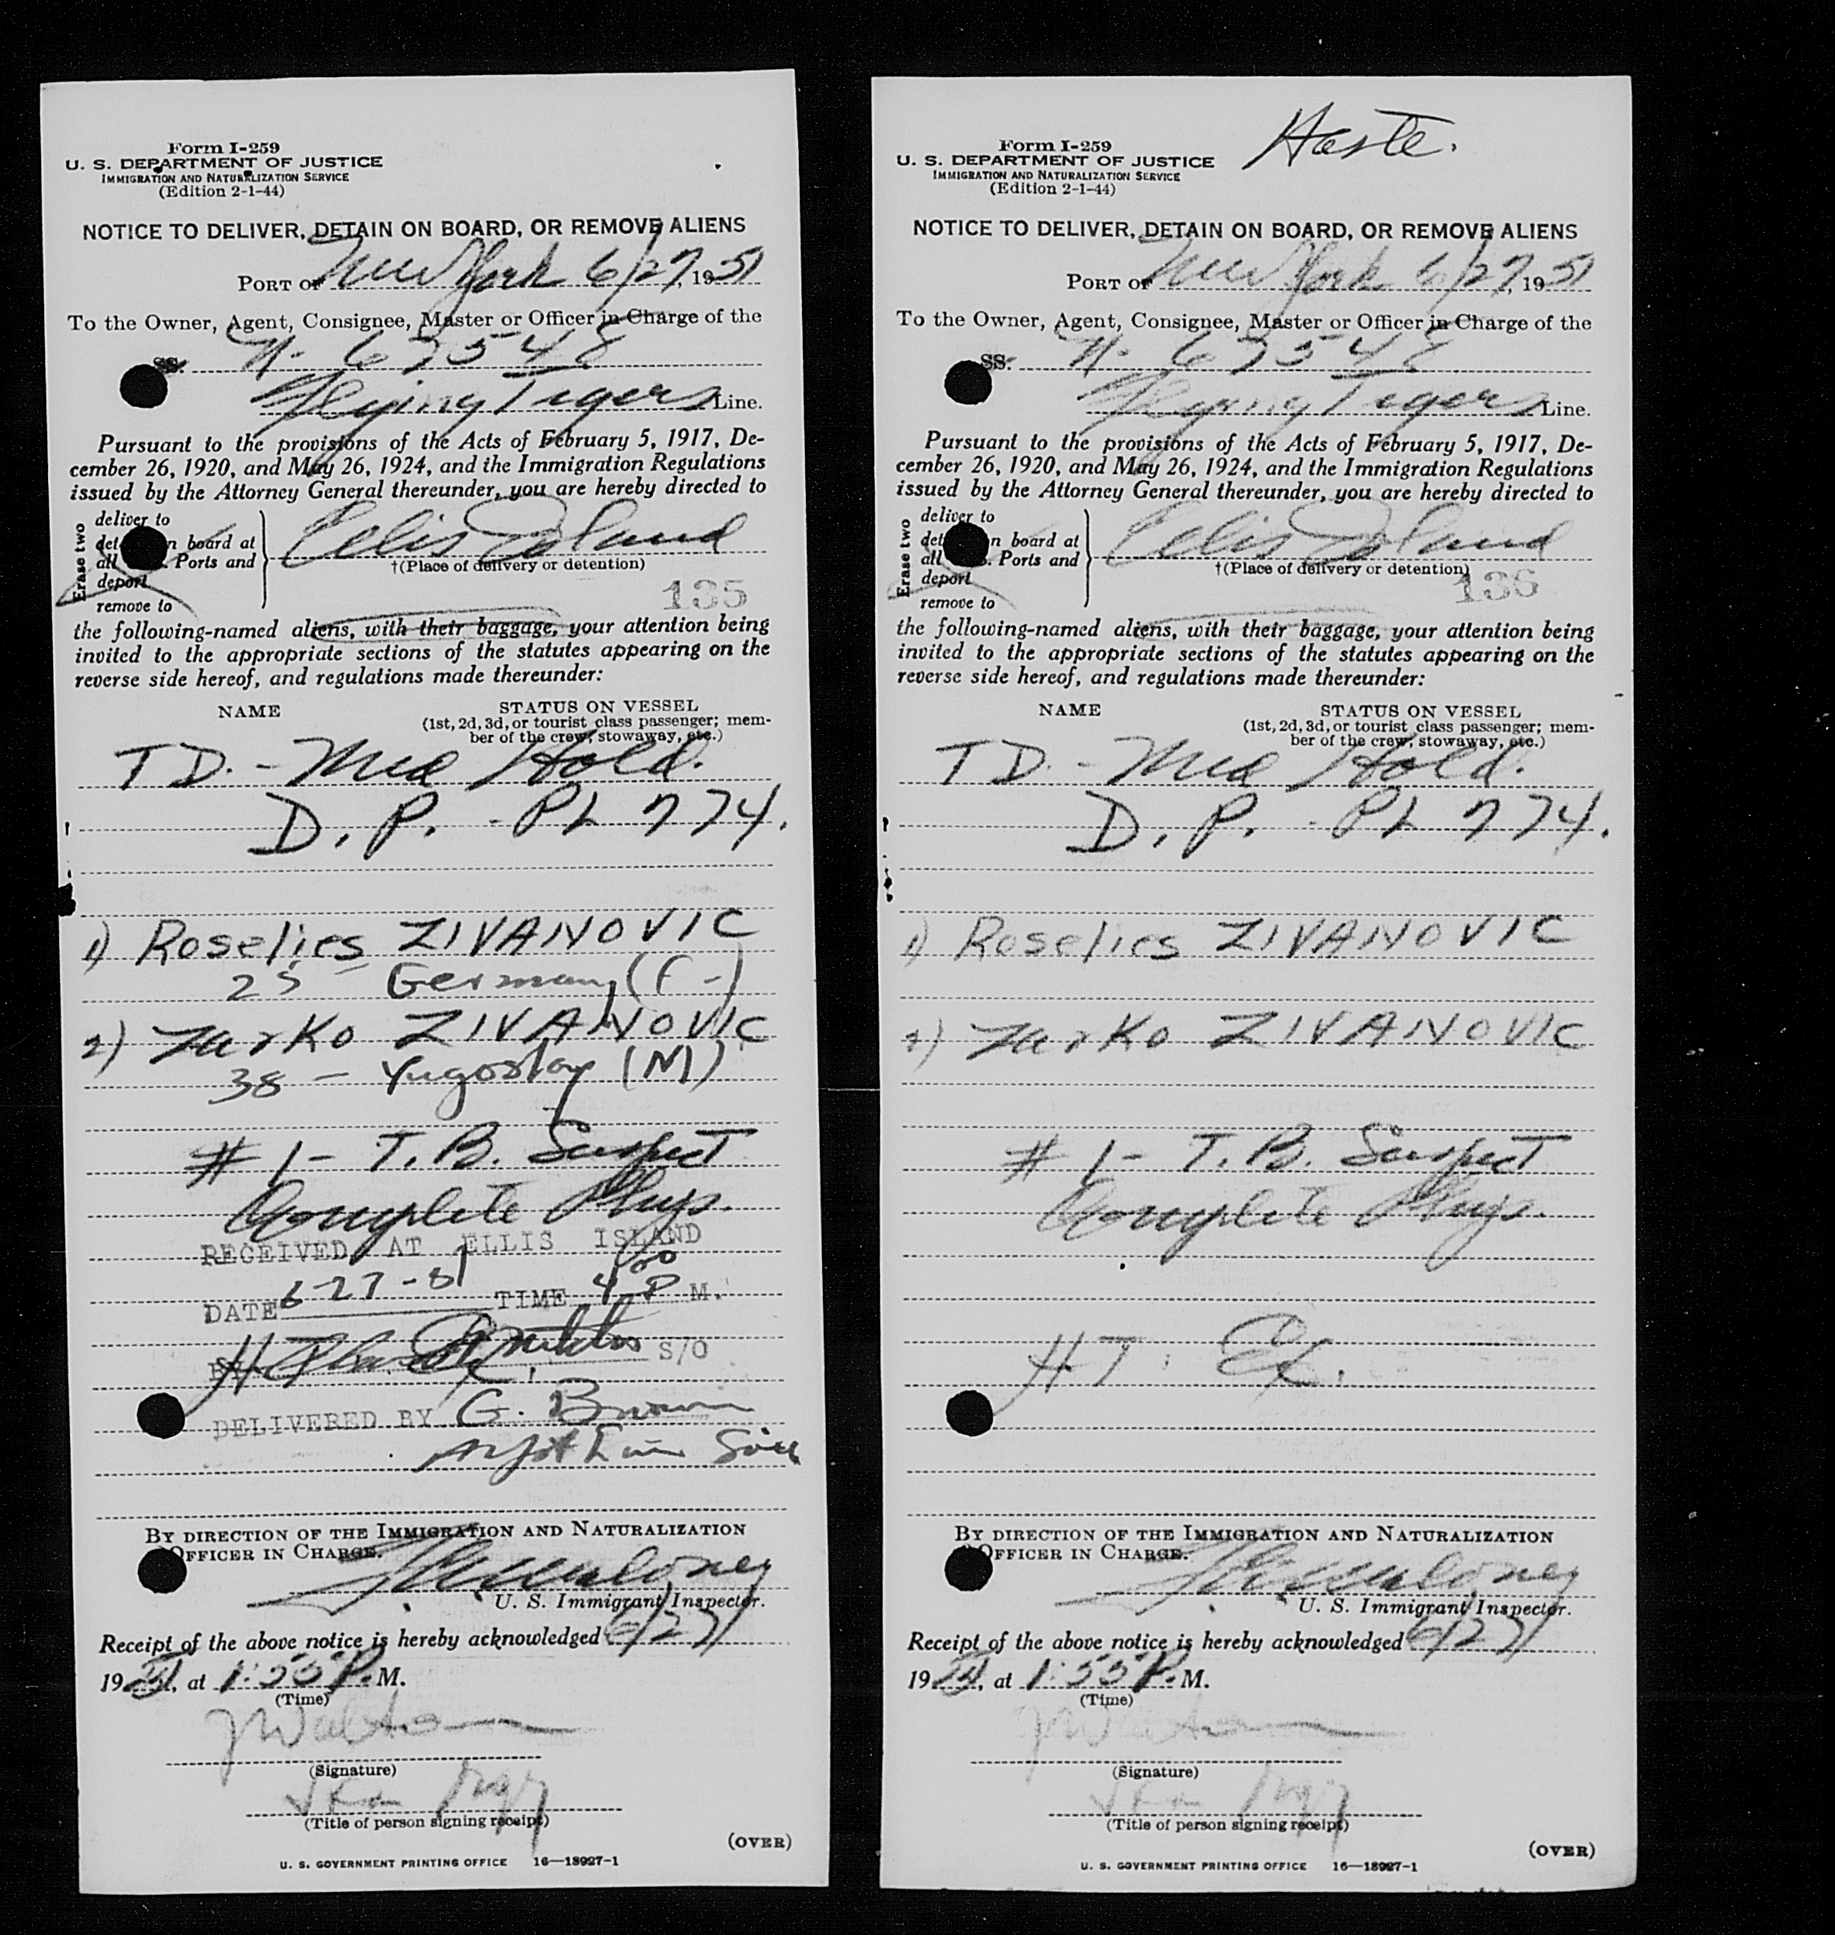 Form I-259
U. S. DEPARTMENT OF JUSTICE
IMMIGRATION AND NATURALIZATION SERVICE
(Edition 2-1-44)
NOTICE TO DELIVER, DETAIN ON BOARD, OR REMOVE ALIENS
PORT OF New York 6/27, 1951
To the Owner, Agent, Consignee, Master or Officer in Charge of the
SS. N. 67548
Flying Tigers Line.
Pursuant to the provisions of the Acts of February 5, 1917, De-
cember 26, 1920, and May 26, 1924, and the Immigration Regulations
issued by the Attorney General thereunder, you are hereby directed to
Erase two
deliver to
det n board at
all . Ports and
deport
remove to
Ellis Island
†(Place of delivery or detention)
135
the following-named aliens, with their baggage, your attention being
invited to the appropriate sections of the statutes appearing on the
reverse side hereof, and regulations made thereunder:
NAME
STATUS ON VESSEL
(1st, 2d, 3d, or tourist class passenger; mem-
ber of the crew, stowaway, etc.)
T D. - Med Hold.
D. P. - PL 774.
1) Roselies ZIVANOVIC
25 - Germany (F -)
2) Zarko ZIVANOVIC
38 - Yugoslav (M)
# 1 - T. B. Suspect
Complete Phys.
RECEIVED AT ELLIS ISLAND
DATE 6-27-51 TIME 4 00 P M.
BY S/O
H T Ex.
DELIVERED BY G. Brown
BY DIRECTION OF THE IMMIGRATION AND NATURALIZATION
OFFICER IN CHARGE.
U. S. Immigrant Inspector.
Receipt of the above notice is hereby acknowledged 6/27
1951, at 1:55 P. M.
(Time)
J Walton
(Signature)
Sta Mgr
(Title of person signing receipt)
(OVER)
U. S. GOVERNMENT PRINTING OFFICE 16—18927-1
Haste.
Form I-259
U. S. DEPARTMENT OF JUSTICE
IMMIGRATION AND NATURALIZATION SERVICE
(Edition 2-1-44)
NOTICE TO DELIVER, DETAIN ON BOARD, OR REMOVE ALIENS
PORT OF New York 6/27, 1951
To the Owner, Agent, Consignee, Master or Officer in Charge of the
SS. N. 67548
Flying Tigers Line.
Pursuant to the provisions of the Acts of February 5, 1917, De-
cember 26, 1920, and May 26, 1924, and the Immigration Regulations
issued by the Attorney General thereunder, you are hereby directed to
Erase two
deliver to
det n board at
all . Ports and
deport
remove to
Ellis Island
†(Place of delivery or detention)
136
the following-named aliens, with their baggage, your attention being
invited to the appropriate sections of the statutes appearing on the
reverse side hereof, and regulations made thereunder:
NAME
STATUS ON VESSEL
(1st, 2d, 3d, or tourist class passenger; mem-
ber of the crew, stowaway, etc.)
T D. - Med Hold.
D. P. - PL 774.
1) Roselies ZIVANOVIC
2) Zarko ZIVANOVIC
# 1 - T. B. Suspect
Complete Phys.
H T : Ex.
BY DIRECTION OF THE IMMIGRATION AND NATURALIZATION
OFFICER IN CHARGE.
U. S. Immigrant Inspector.
Receipt of the above notice is hereby acknowledged 6/27
1951, at 1:55 P. M.
(Time)
J Walton
(Signature)
Sta Mgr
(Title of person signing receipt)
(OVER)
U. S. GOVERNMENT PRINTING OFFICE 16—18927-1